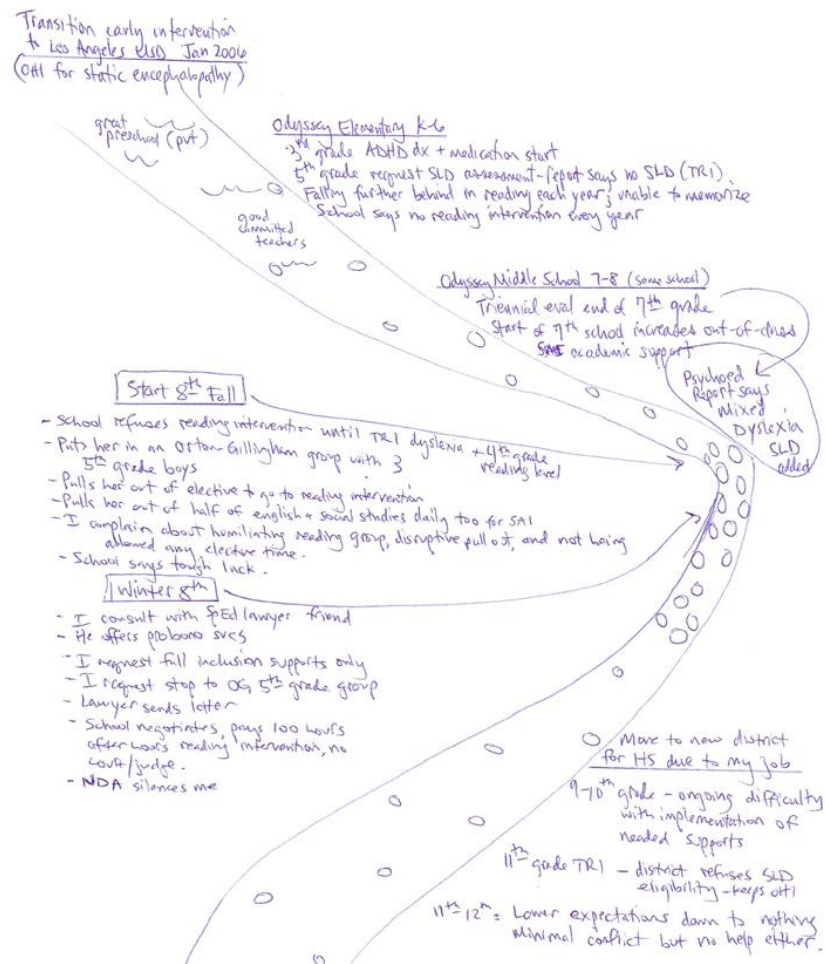 Transition early intervention
to Los Angeles USD Jan 2006
(OHI for static encephalopathy)
great
preschool (pvt)
Odyssey Elementary K-6
3rd grade ADHD dx + medication start
5th grade request SLD assessment - report says no SLD (TRI).
Falling further behind in reading each year; unable to memorize
School says no reading intervention every year
good
committed
teachers
Odyssey Middle School 7-8 (same school)
Triennial eval end of 7th grade
Start of 7th school increases out-of-class
academic support
Psychoed
Report says
Mixed
Dyslexia
SLD
added
Start 8th Fall
- School refuses reading intervention until TRI dyslexia + 4th grade
reading level
- Puts her in an Orton-Gillingham group with 3
5th grade boys
- Pulls her out of elective to go to reading intervention
- Pulls her out of half of english + social studies daily too for SAI
- I complain about humiliating reading group, disruptive pull out, and not being
allowed any elective time.
- School says tough luck.
Winter 8th
- I consult with SpEd lawyer friend
- He offers probono svcs
- I request full inclusion supports only
- I request stop to OG 5th grade group
- Lawyer sends letter
- School negotiates, pays 100 hours
after hours reading intervention, no
court/judge.
- NDA silences me
Move to new district
for HS due to my job
9-10th grade - ongoing difficulty
with implementation of
needed supports
11th grade TRI - district refuses SLD
eligibility - keeps OHI
11th-12th = Lower expectations down to nothing
Minimal conflict but no help either.